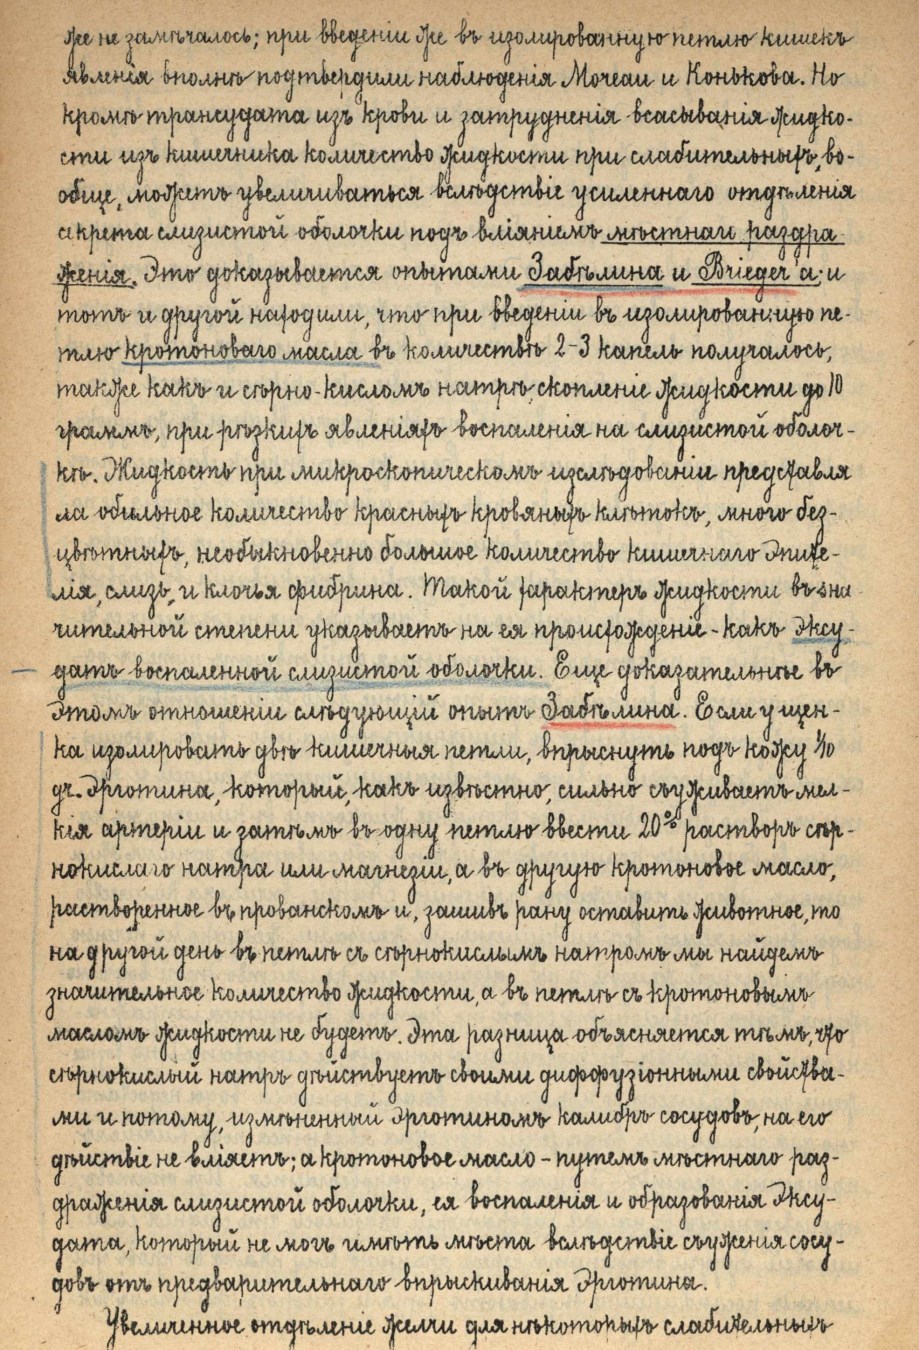 же не замѣчалось; при введеніи же въ изолированную петлю кишекъ
явленія вполнѣ подтвердили наблюденія Мочеаи и Конькова. Но
кромѣ трансудата изъ крови и затрудненія всасыванія жидко-
сти изъ кишечника количество жидкости при слабительныхъ, во-
обще, можетъ увеличиваться вслѣдствіе усиленнаго отдѣленія
секрета слизистой оболочки подъ вліяніемъ мѣстнаго раздра
женія. Это доказывается опытами Забѣлина и Brieger'а; и
тотъ и другой находили, что при введеніи въ изолированную пе-
тлю кротоноваго масла въ количествѣ 2-3 капель получалось,
также какъ и сѣрно-кисломъ натрѣ, скопленіе жидкости до 10
граммъ, при рѣзкихъ явленіяхъ воспаленія на слизистой оболоч-
кѣ. Жидкость при микроскопическомъ изслѣдованіи представля
ла обильное количество красныхъ кровяныхъ клѣтокъ, много без-
цвѣтныхъ, необыкновенно большое количество кишечнаго эпите-
лія, слизь, и клочья фибрина. Такой характеръ жидкости въ зна
чительной степени указываетъ на ея происхожденіе - какъ эксу-
датъ воспаленной слизистой оболочки. Еще доказательнѣе въ
этомъ отношеніи слѣдующій опытъ Забѣлина. Если у щен-
ка изолировать двѣ кишечныя петли, впрыснуть подъ кожу 1/10
гр. Эрготина, который, какъ извѣстно, сильно съуживаетъ мел-
кія артеріи и затѣмъ въ одну петлю ввести 20% растворъ сѣр-
нокислаго натра или магнезіи, а въ другую кротоновое масло,
растворенное въ прованскомъ и, зашивъ рану оставить животное, то
на другой день въ петлѣ съ сѣрнокислымъ натромъ мы найдемъ
значительное количество жидкости, а въ петлѣ съ кротоновымъ
масломъ жидкости не будетъ. Эта разница объясняется тѣмъ, что
сѣрнокислый натръ дѣйствуетъ своими диффузіонными свойства-
ми и потому, измѣненный эрготиномъ калибръ сосудовъ, на его
дѣйствіе не вліяетъ; а кротоновое масло - путемъ мѣстнаго раз-
драженія слизистой оболочки, ея воспаленія и образованія эксу-
дата, который не могъ имѣть мѣста вслѣдствіе съуженія сосу-
довъ отъ предварительнаго впрыскиванія эрготина.
Увеличенное отдѣленіе желчи для нѣкоторыхъ слабительныхъ